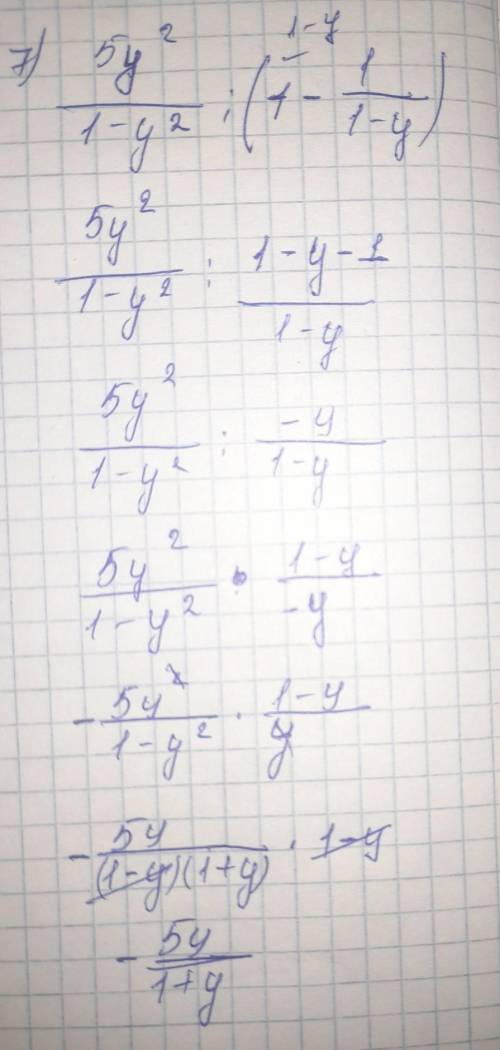 7) 5y²/(1-y²) : (1 - 1/(1-y)) 1-y
5y²/(1-y²) : (1-y-1)/(1-y)
5y²/(1-y²) : -y/(1-y)
5y²/(1-y²) · (1-y)/-y
-5y²/(1-y²) · (1-y)/y
-5y/((1-y)(1+y)) · 1-y
-5y/(1+y)